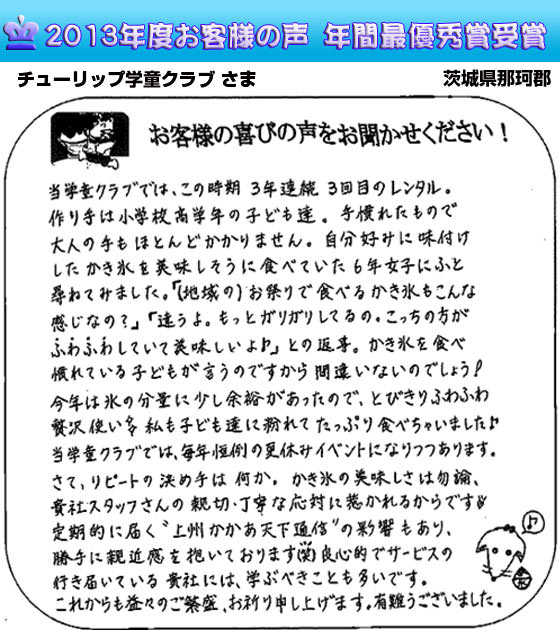 2013年度お客様の声 年間最優秀賞受賞
チューリップ学童クラブ さま 茨城県那珂郡
お客様の喜びの声をお聞かせください!
当学童クラブでは、この時期 3年連続 3回目のレンタル。
作り手は小学校高学年の子ども達。手慣れたもので
大人の手もほとんどかかりません。自分好みに味付け
したかき氷を美味しそうに食べていた6年女子にふと
尋ねてみました。「(地域の)お祭りで食べるかき氷もこんな
感じなの?」「違うよ。もっとガリガリしてるの。こっちの方が
ふわふわしていて美味しいよ♪」との返事。かき氷を食べ
慣れている子どもが言うのですから間違いないのでしょう!
今年は氷の分量に少し余裕があったので、とびきりふわふわ
贅沢使い 私も子ども達に紛れてたっぷり食べちゃいました♪
当学童クラブでは、毎年恒例の夏休みイベントになりつつあります。
さて、リピートの決め手は何か。かき氷の美味しさは勿論、
貴社スタッフさんの親切・丁寧な応対に惹かれるからです
定期的に届く“上州かかあ天下通信”の影響もあり、
勝手に親近感を抱いております(笑)良心的でサービスの
行き届いている貴社には、学ぶべきことも多いです。
これからも益々のご繁盛、お祈り申し上げます。有難うございました。